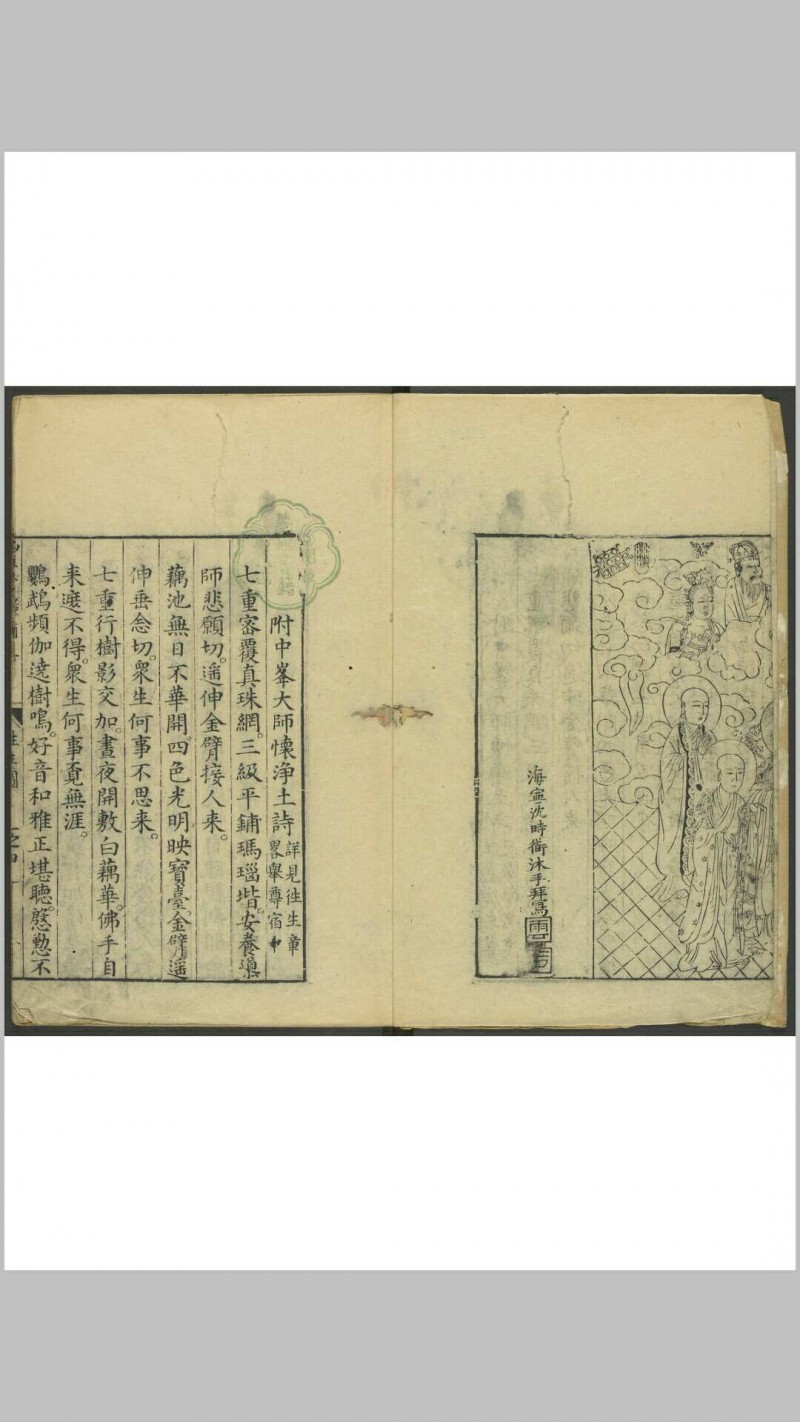 海寧沈時衡沐手拜寫
附中峯大師懷淨土詩 詳見往生章畧舉尊宿中
七重密覆真珠網。三級平鋪瑪瑙堦。安養導
師悲願切。遥伸金臂接人来。
藕池無日不華開。四色光明映寶臺。金臂遥
伸垂念切。衆生何事不思来。
七重行樹影交加。晝夜開敷白藕華。佛手自
来遮不得。衆生何事覔無涯。
鸚鵡頻伽遶樹鳴。好音和雅正堪聽。慇懃不